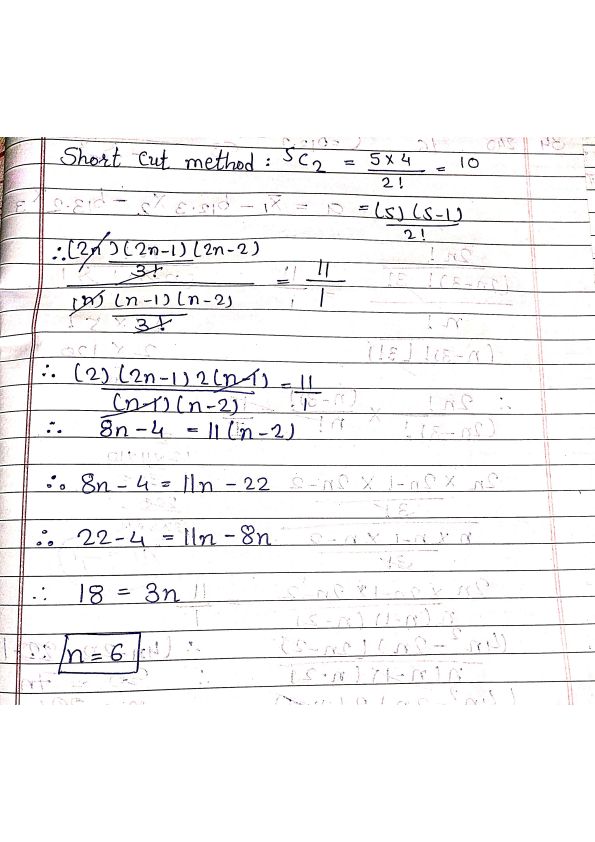 Short Cut method : ⁵C₂ = 5×4/2! = 10
= (5)(5-1)/2!
∴ (2n)(2n-1)(2n-2)/3! / (n)(n-1)(n-2)/3! = 11/1
∴ (2)(2n-1)2(n-1)/(n-1)(n-2) = 11/1
∴ 8n-4 = 11(n-2)
∴ 8n-4 = 11n-22
∴ 22-4 = 11n-8n
∴ 18 = 3n
n=6